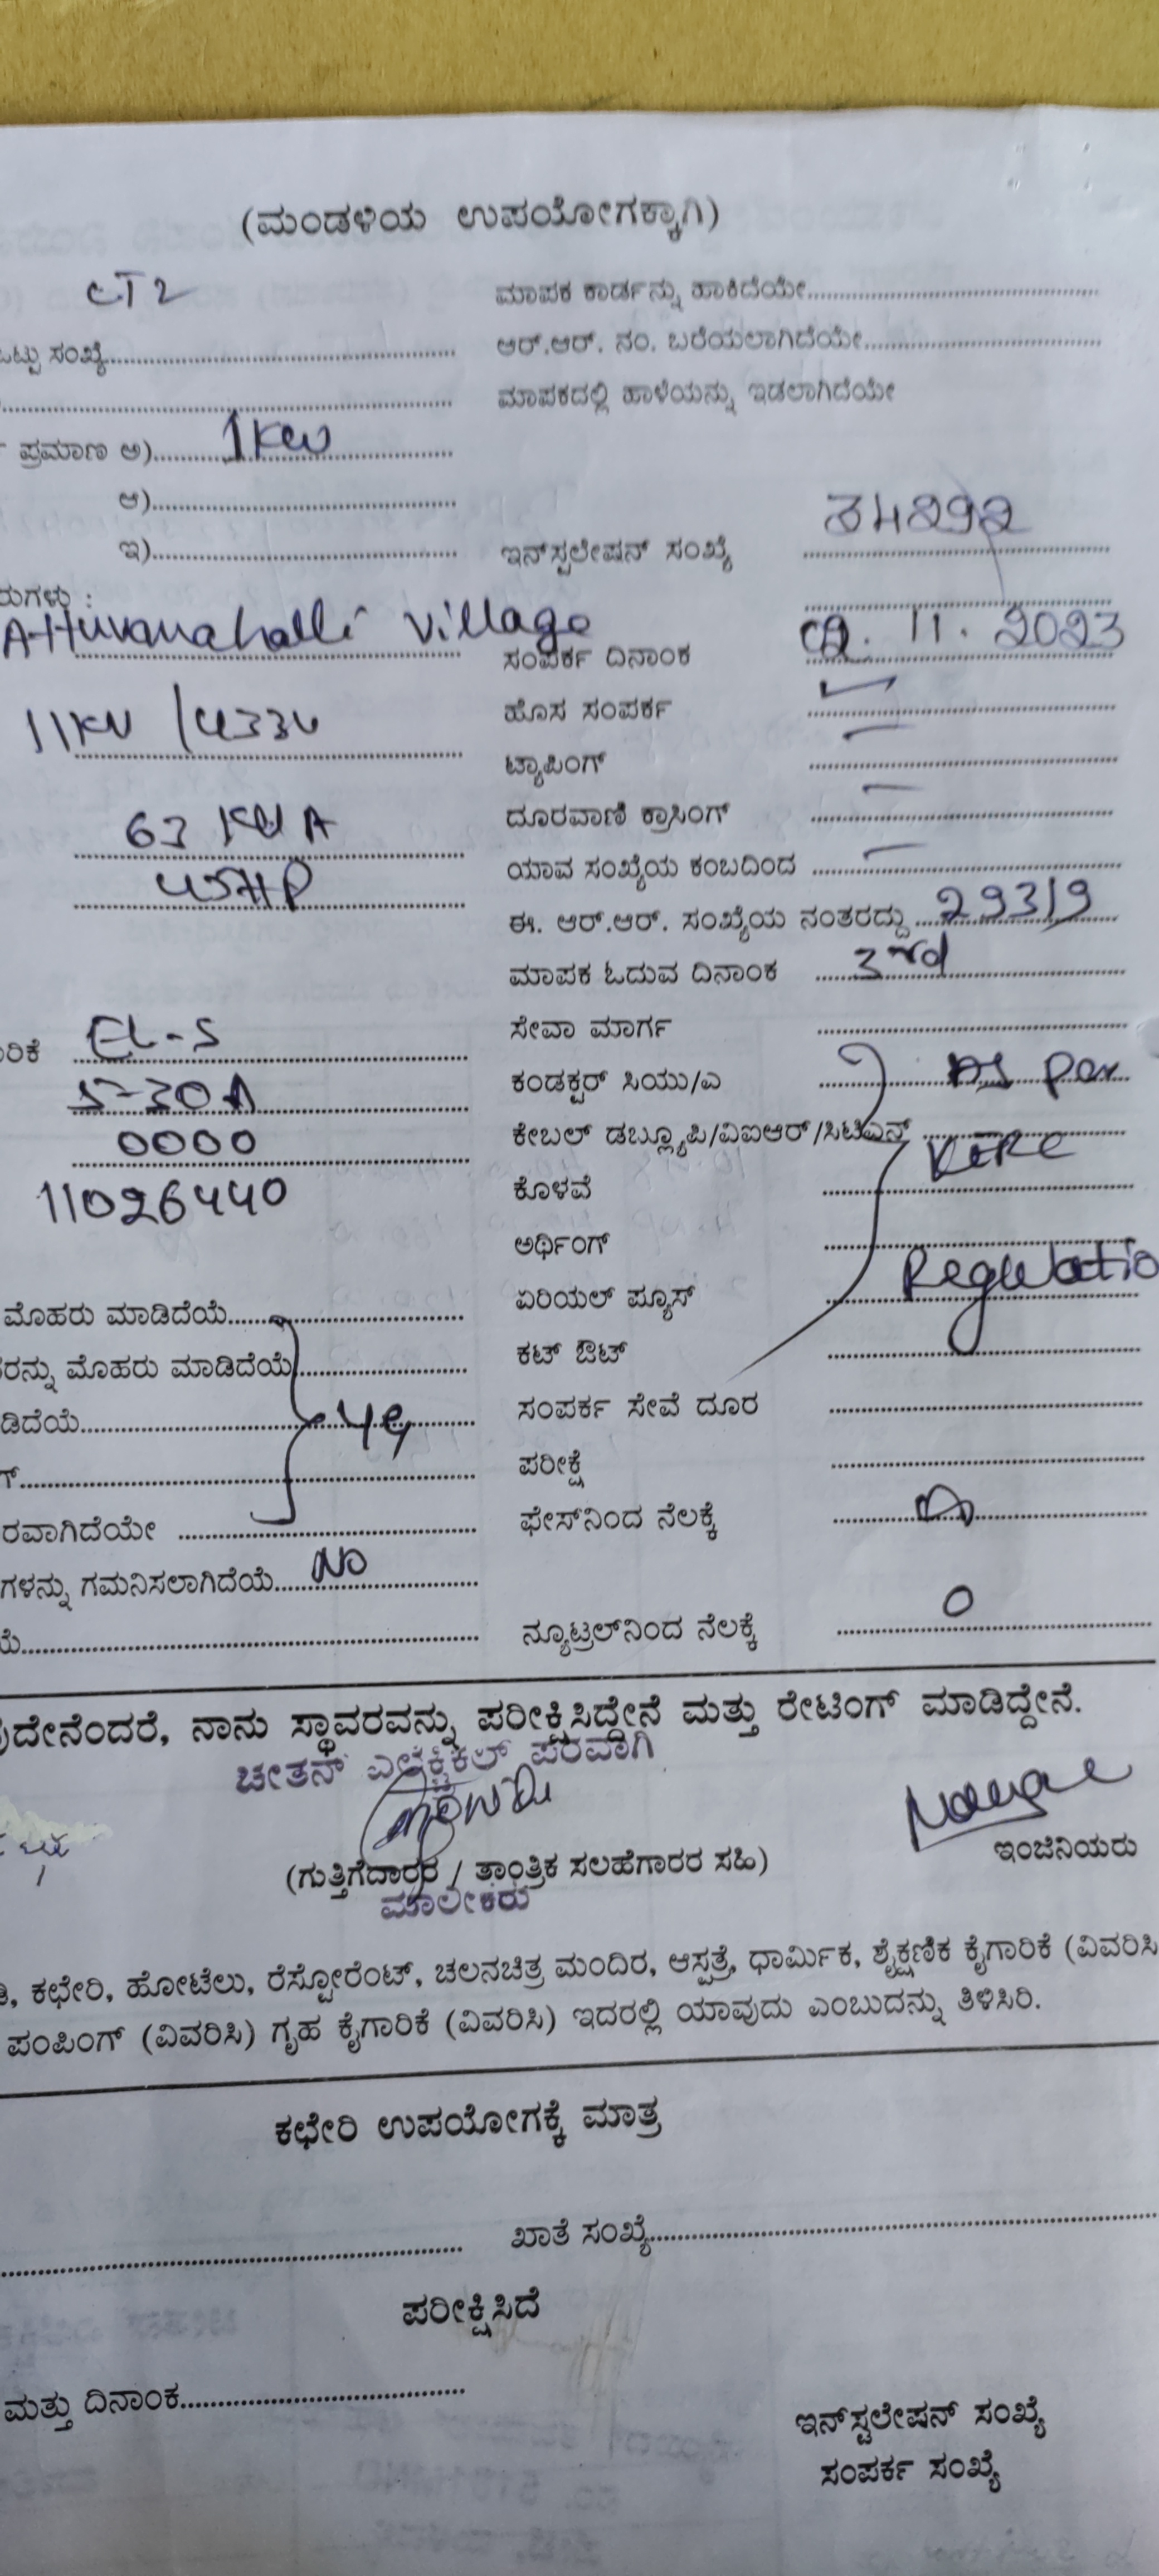 (ಮಂಡಳಿಯ ಉಪಯೋಗಕ್ಕಾಗಿ)
ಮಾಪಕ ಕಾರ್ಡನ್ನು ಹಾಕಿದೆಯೇ
ಒಟ್ಟು ಸಂಖ್ಯೆ
ಆರ್.ಆರ್. ನಂ. ಬರೆಯಲಾಗಿದೆಯೇ
ಮಾಪಕದಲ್ಲಿ ಹಾಳೆಯನ್ನು ಇಡಲಾಗಿದೆಯೇ
ಪ್ರಮಾಣ ಅ) 1 KW
ಆ)
ಇ)
ಇನ್‌ಸ್ಟಲೇಷನ್ ಸಂಖ್ಯೆ
Attuvanahalli village
ಸಂಪರ್ಕ ದಿನಾಂಕ 11. 2023
11KV
ಹೊಸ ಸಂಪರ್ಕ
ಟ್ಯಾಪಿಂಗ್ –
63 KVA
ದೂರವಾಣಿ ಕ್ರಾಸಿಂಗ್ –
ಯಾವ ಸಂಖ್ಯೆಯ ಕಂಬದಿಂದ –
ಈ. ಆರ್.ಆರ್. ಸಂಖ್ಯೆಯ ನಂತರದ್ದು
ಮಾಪಕ ಓದುವ ದಿನಾಂಕ 3rd
EL-S
ಸೇವಾ ಮಾರ್ಗ
5-30A
ಕಂಡಕ್ಟರ್ ಸಿಯು/ಎ As per
0000
ಕೇಬಲ್ ಡಬ್ಲ್ಯೂಪಿ/ವಿಐಆರ್/ಸಿಟಿಎಸ್ KERC
11026440
ಕೊಳವೆ
ಅರ್ಥಿಂಗ್ Regulatio
ಮೊಹರು ಮಾಡಿದೆಯೆ
ಏರಿಯಲ್ ಪ್ಯೂಸ್
ರನ್ನು ಮೊಹರು ಮಾಡಿದೆಯೆ
ಕಟ್ ಔಟ್
ಡಿದೆಯೆ
ಸಂಪರ್ಕ ಸೇವೆ ದೂರ
ಪರೀಕ್ಷೆ
ರವಾಗಿದೆಯೇ
ಫೇಸ್‌ನಿಂದ ನೆಲಕ್ಕೆ
ಗಳನ್ನು ಗಮನಿಸಲಾಗಿದೆಯೆ NO
ನ್ಯೂಟ್ರಲ್‌ನಿಂದ ನೆಲಕ್ಕೆ 0
ದೇನೆಂದರೆ, ನಾನು ಸ್ಥಾವರವನ್ನು ಪರೀಕ್ಷಿಸಿದ್ದೇನೆ ಮತ್ತು ರೇಟಿಂಗ್ ಮಾಡಿದ್ದೇನೆ.
ಚೇತನ್ ಎಲೆಕ್ಟ್ರಿಕಲ್ ಪರವಾಗಿ
(ಗುತ್ತಿಗೆದಾರರ / ತಾಂತ್ರಿಕ ಸಲಹೆಗಾರರ ಸಹಿ) ಇಂಜಿನಿಯರು
ಮಾಲೀಕರು
ಕಛೇರಿ, ಹೋಟೆಲು, ರೆಸ್ಟೋರೆಂಟ್, ಚಲನಚಿತ್ರ ಮಂದಿರ, ಆಸ್ಪತ್ರೆ, ಧಾರ್ಮಿಕ, ಶೈಕ್ಷಣಿಕ ಕೈಗಾರಿಕೆ (ವಿವರಿಸಿ
ಪಂಪಿಂಗ್ (ವಿವರಿಸಿ) ಗೃಹ ಕೈಗಾರಿಕೆ (ವಿವರಿಸಿ) ಇದರಲ್ಲಿ ಯಾವುದು ಎಂಬುದನ್ನು ತಿಳಿಸಿರಿ.
ಕಛೇರಿ ಉಪಯೋಗಕ್ಕೆ ಮಾತ್ರ
ಖಾತೆ ಸಂಖ್ಯೆ
ಪರೀಕ್ಷಿಸಿದೆ
ಮತ್ತು ದಿನಾಂಕ
ಇನ್‌ಸ್ಟಲೇಷನ್ ಸಂಖ್ಯೆ
ಸಂಪರ್ಕ ಸಂಖ್ಯೆ